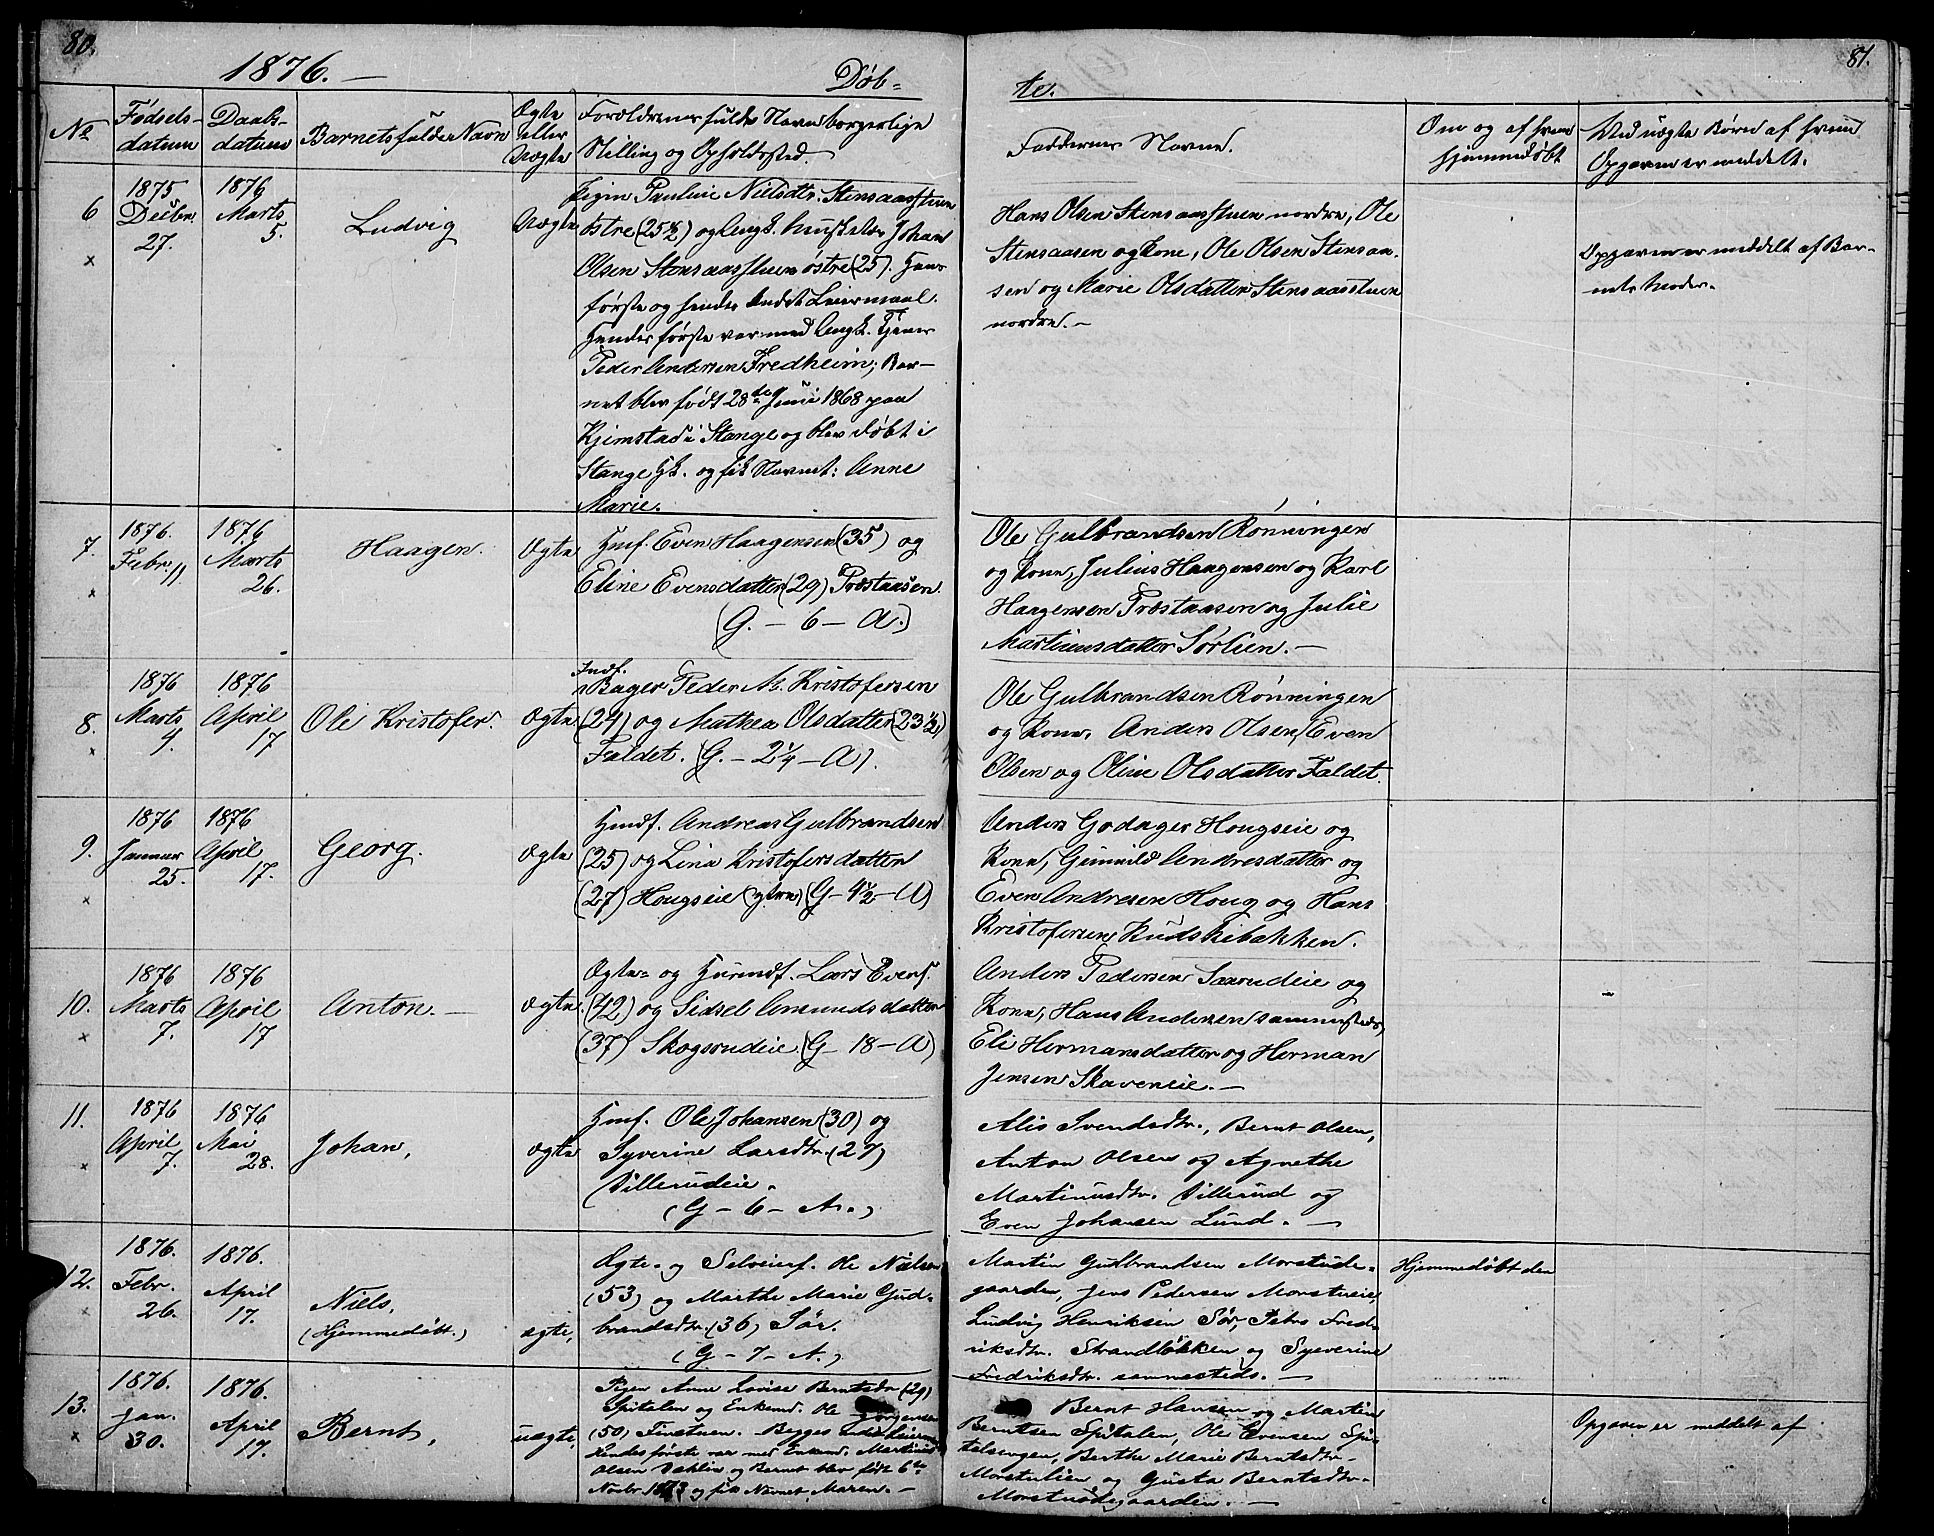 80.
1876. —
Døb-
№
Fødsels-
datum
Daabs-
datum
Barnets fulde Navn
Ægte
eller
Uægte
Forældrenes fulde Navn borgerlige
Stilling og Opholdssted.
6
1875
Decbr.
27.
1876
Marts
5.
Ludvig
Uægte
Pigen Pauline Nielsdtr. Stensaasstuen
østre (25½) og Ungk. Johan
Olsen Stensaasstuen østre (25). Hans
første og hendes andet Leiermaal.
Hendes første var med Ungk. Tjener
Peder Andersen Fredheim; Bar-
net blev født 28de Juni 1868 paa
Kjemstad i Stange og blev døbt i
Stange Hk. og fik Navnet: Anne
Marie.
7.
1876.
Febr. 11
1876
Marts
26.
Haagen.
Ægte
Husf. Even Haagensen (35) og
Eline Evensdatter (29) Præstaasen.
(G. — 6 — A.)
8.
1876
Marts
4.
1876
April
17
Ole Kristofer.
Ægte
Indf.
Bager Peder M. Kristofersen
(24) og Mathea Olsdatter (23½)
Faldet. (G. — 2¼ — A).
9.
1876
Januar
25.
1876
April
17.
Georg.
Ægte
Husf. Andreas Gulbrandsen
(25) og Lina Kristofersdatter
(27) Hougseie (G — 4½ — A)
10.
1876
Marts
7.
1876
April
17
Anton. —
Ægte.
Ægte- og Lars Evens.
(42) og Sidsel Amundsdatter
(37) Skogsrudeie. (G — 18 — A)
11.
1876
April
7.
1876
Mai
28.
Johan,
Ægte
Husf. Ole Johansen (30) og
Syverine Larsdtr. (27)
Dillerudeie.
(G — 6 — A.)
12.
1876.
Febr.
26.
1876.
April
17.
Niels,
(Hjemmedøbt.)
ægte,
Ægte- og Selveierf. Ole Nielsen
(53) og Marthe Marie Gud-
brandsdtr. (36) Sør.
(G — 7 — A.)
13.
1876.
Jan.
30.
1876.
April
17.
Bernt,
uægte,
Pigen Anne Lovise Berntsdtr (29)
Spitalen og Enkemd. Ole Jørgensen
(50) Finstuen. — Begges andet Leierm.
Hendes første var med Enkem. Martinius
Olsen Dæhlin og Barnet blev født 6te
Novbr. 1873 og fik Navnet Maren. —
81.
te.
Faddernes Navne.
Om og af hvem
hjemmedøbt
Ved uægte Børn af hvem
Opgaven er meddelt.
Hans Olsen Stensaasstuen nordre, Ole
Stensaasen og Kone, Ole Olsen Stensaa-
sen og Marie Olsdatter Stensaasstuen
nordre. —
Opgaven er meddelt af Bar-
nets Moder.
Ole Gulbrandsen Rønningen
og Kone, Julius Haagensen og Karl
Haagensen Præstaasen og Julie
Martinusdatter Sørlien. —
Ole Gulbrandsen Rønningen
og Kone, Anders Olsen, Even
Olsen og Oline Olsdatter Faldet.
Anders Godager Hougseie og
Kone, Gunnild Andresdatter og
Even Andresen Houg og Hans
Kristofersen Rudskibakken.
Anders Pedersen Saxrudeie og
Kone, Hans Andersen sammesteds,
Eli Hermansdatter og Herman
Jensen Skaveneie. —
Alis Svendsdtr., Bernt Olsen,
Anton Olsen og Agnethe
Martinusdtr. Dillerud og
Even Johansen Lund. —
Martin Gudbrandsen Morstude-
gaarden, Jens Pedersen Morstueie,
Ludvig Henriksen Sør, Petra Fred-
riksdtr. Strandløkken og Syverine
Fredriksdtr. sammesteds. —
Hjemmedøbt den
Bernt Hansen og Martin
Berntsen Spitalen, Ole Evensen Spi-
talsengen, Berthe Marie Berntsdtr.
Morstulien og Gusta Berntsdtr.
Morstudegaarden. —
Opgaven er meddelt af